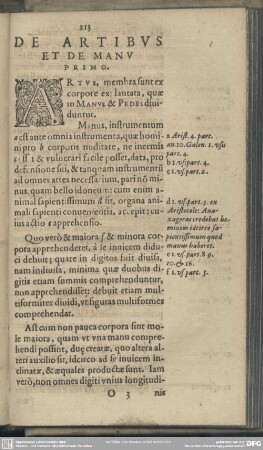 213
DE ARTIBVS
ET DE MANV
PRIMO.
ARTVS, membra sunt ex
corpore exilantata, quæ
in MANVS & PEDES diui-
duntur.
Manus, instrumentum
est ante omnia instrumenta, quæ homi-
ni pro corporis nuditate, ne inermis
esset & vulnerari facile posset, data, pro
defensione sui, & tanquam instrumentũ
ad omnes artes necessarium, paris nĩ ma-
nus, quam bello idoneum: cum enim a-
nimal sapientissimum sit, organa ani-
mali sapienti conuenientia, accepit: cu-
ius actio est apprehensio.
Quo verò & maiora & minora cor-
pora apprehenderet, à se inuicem didu-
ci debuit; quare in digitos fuit diuisa,
nam indiuisa, minima quæ duobus di-
gitis etiam summis comprehenduntur,
non apprehendisset; debuit etiam mul-
tiformiter diuidi, vt figuras multiformes
comprehendat.
Ast cum non pauca corpora sint mo-
le maiora, quam vt vna manu compre-
hendi possint, duæ creatæ, quo altera al-
teri auxilio sit, idcirco ad se inuicem in-
clinatæ, & æquales productæ sunt. Iam
verò, non omnes digiti vnius longitudi-
O 3 nis
a Arist. 4. part.
an. 10. Galen. 1. vsu
part. 4.
b 1. vs. part. 4.
c 1. vs. part. 2.
d 1. vs. part. 3. ex
Aristotele: Ana-
xagoras credebat ho-
minem idcirco sa-
pientissimum quod
manus haberet.
e 1. vs. part. 8. p.
10. & 16.
f 1. vs. part. 5.